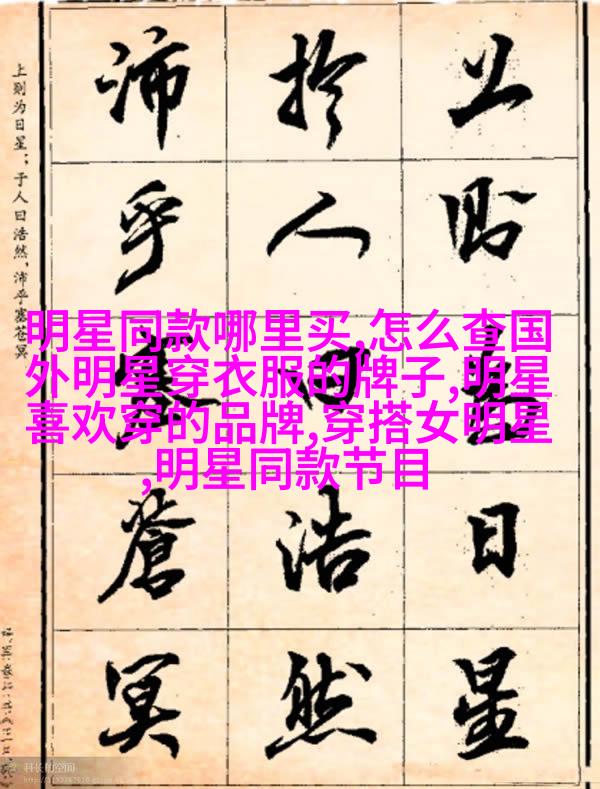 上则为日星
於人曰浩然
沛乎塞蒼冥
上则为日星；于人曰浩然，沛乎塞苍冥
明星同款哪里买,怎么查国
外明星穿衣服的牌子,明星
喜欢穿的品牌,穿搭女明星
,明星同款节目
科长的空间